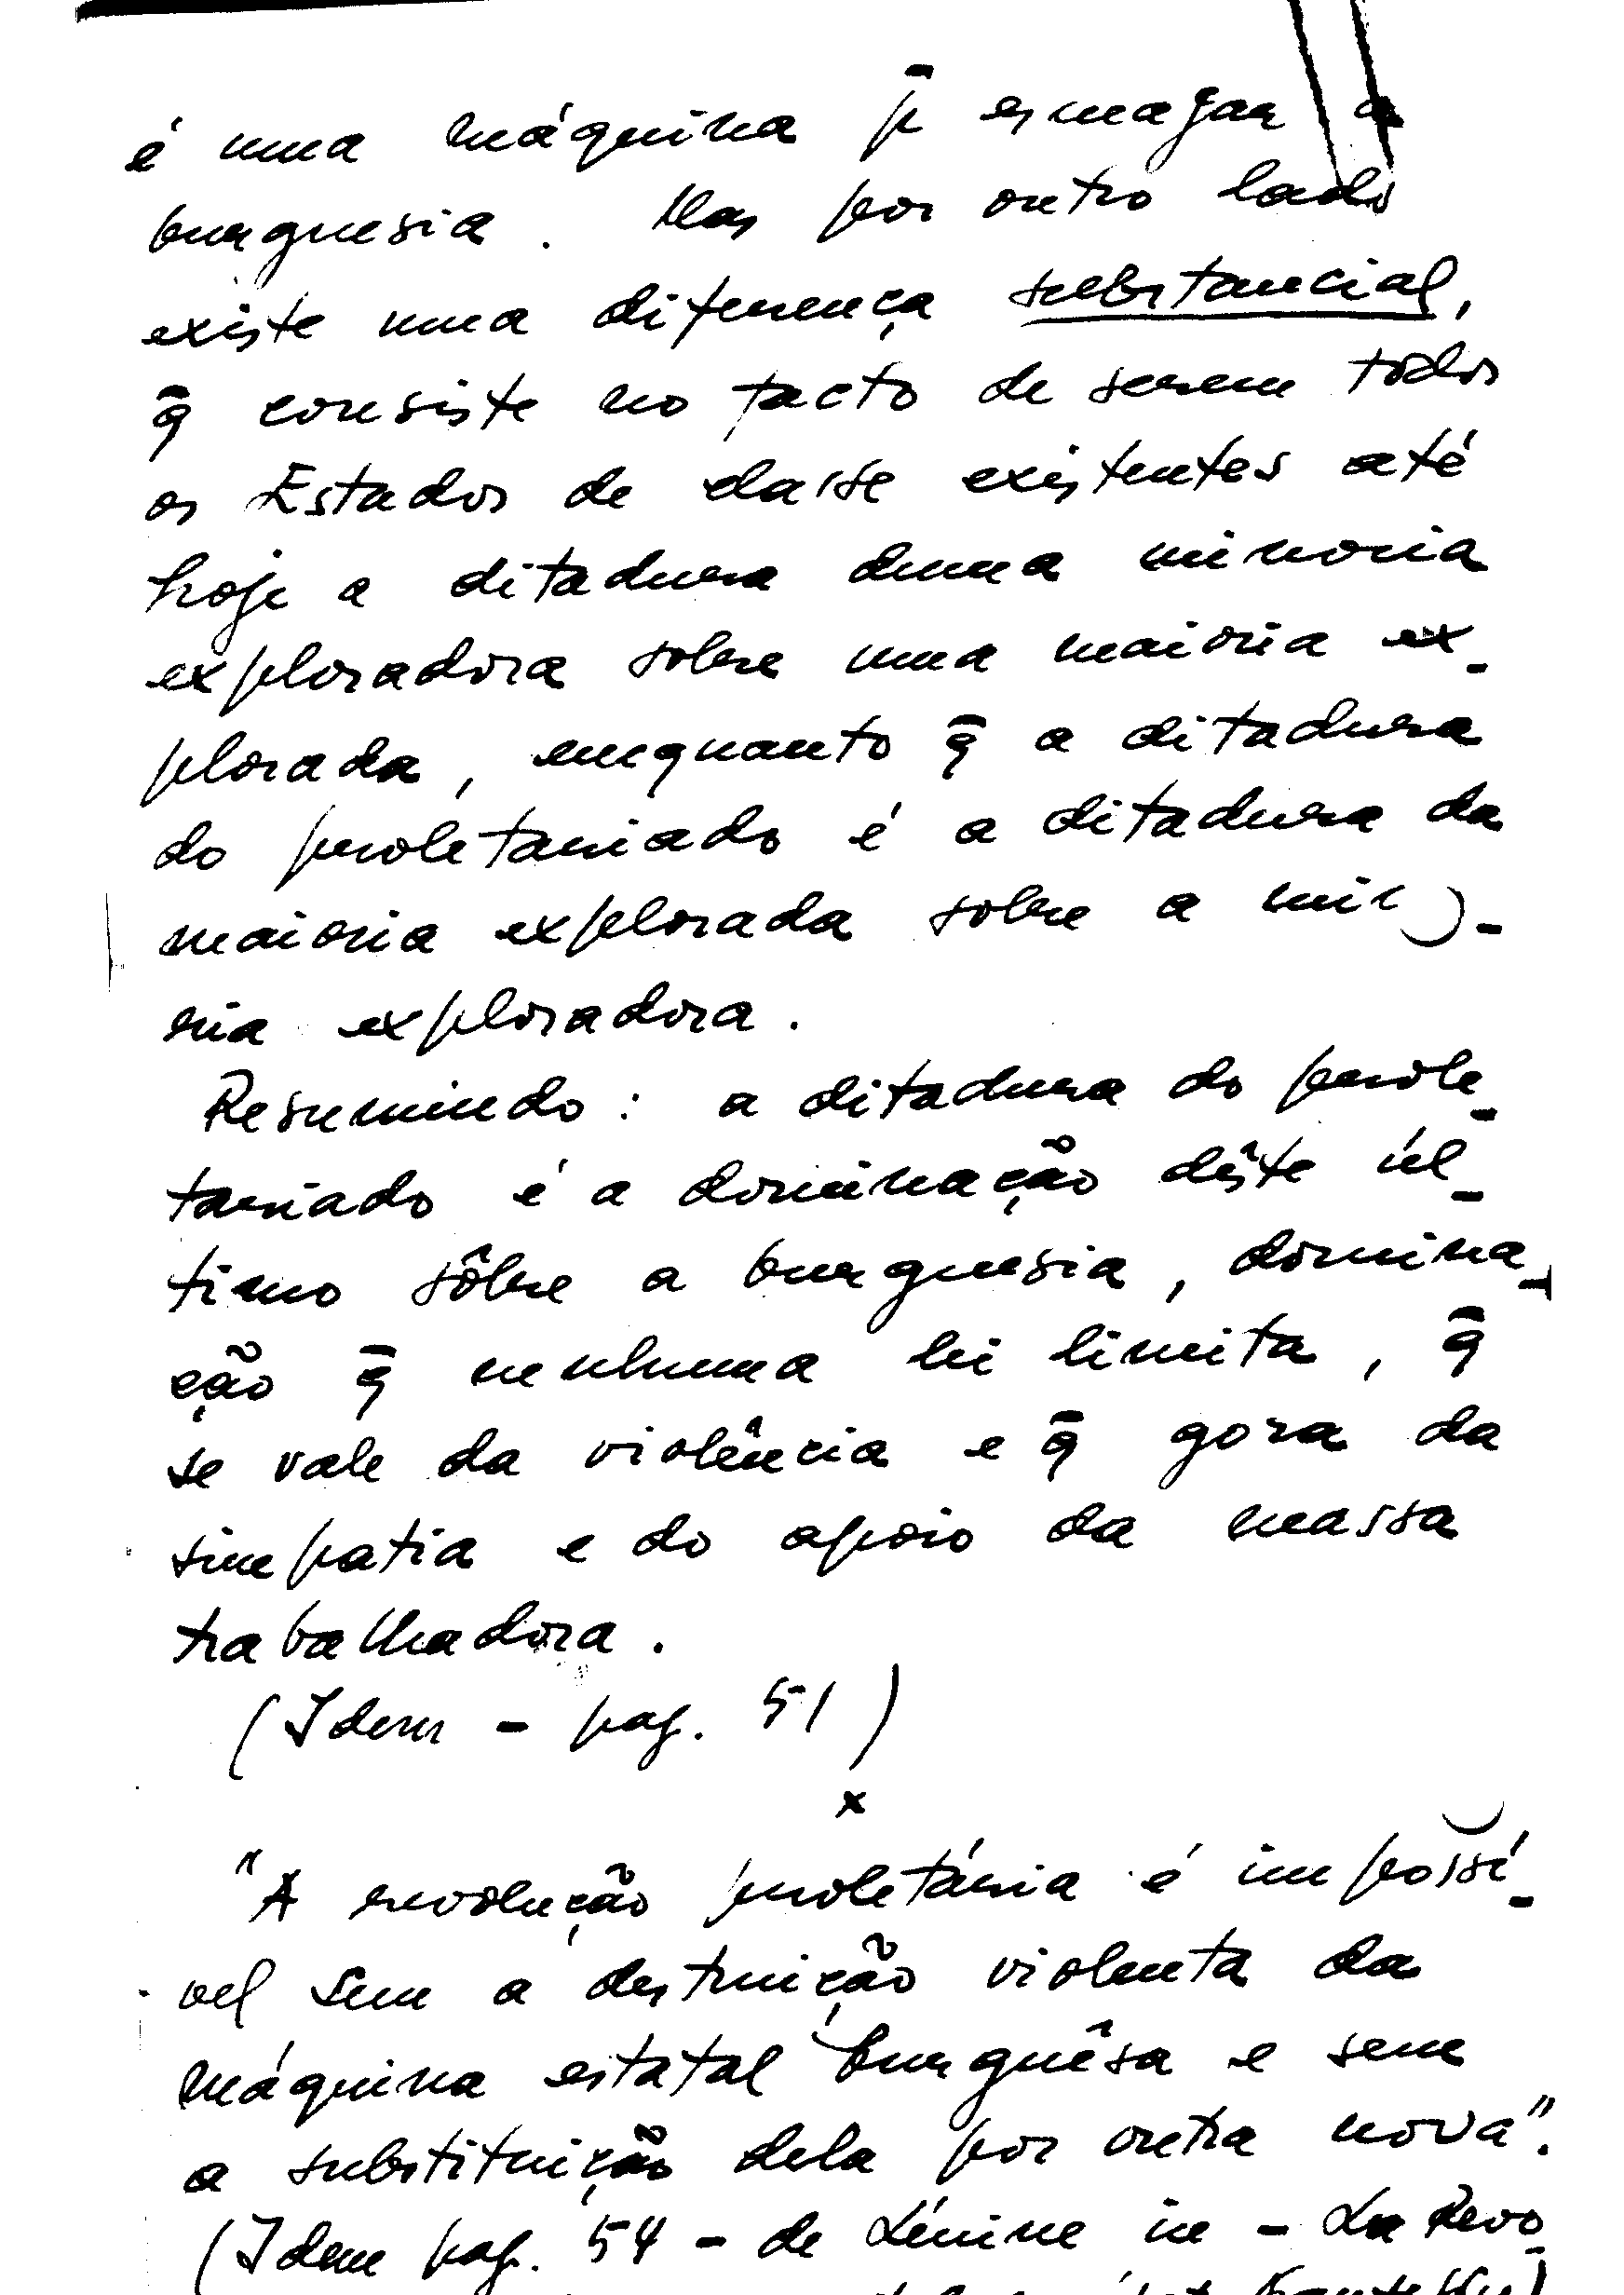 é uma máquina p̄ esmagar a
burguesia. Mas por outro lado
existe uma diferença substancial,
q̄ consiste no facto de serem todos
os Estados de classe existentes até
hoje a ditadura duma minoria
exploradora sobre uma maioria ex-
plorada, emquanto q̄ a ditadura
do proletariado é a ditadura da
maioria explorada sobre a mino-
ria exploradora.
Resumindo: a ditadura do prole-
tariado é a dominação dêste úl-
timo sôbre a burguesia, domina-
ção q̄ nenhuma lei limita, q̄
se vale da violência e q̄ goza da
simpatia e do apoio da massa
trabalhadora.
(Idem - pag. 51)
x
"A revolução proletária é impossí-
vel sem a destruição violenta da
máquina estatal burguêsa e sem
a substituição dela por outra nova".
(Idem pag. 54 - de Lénine in - La Revo-